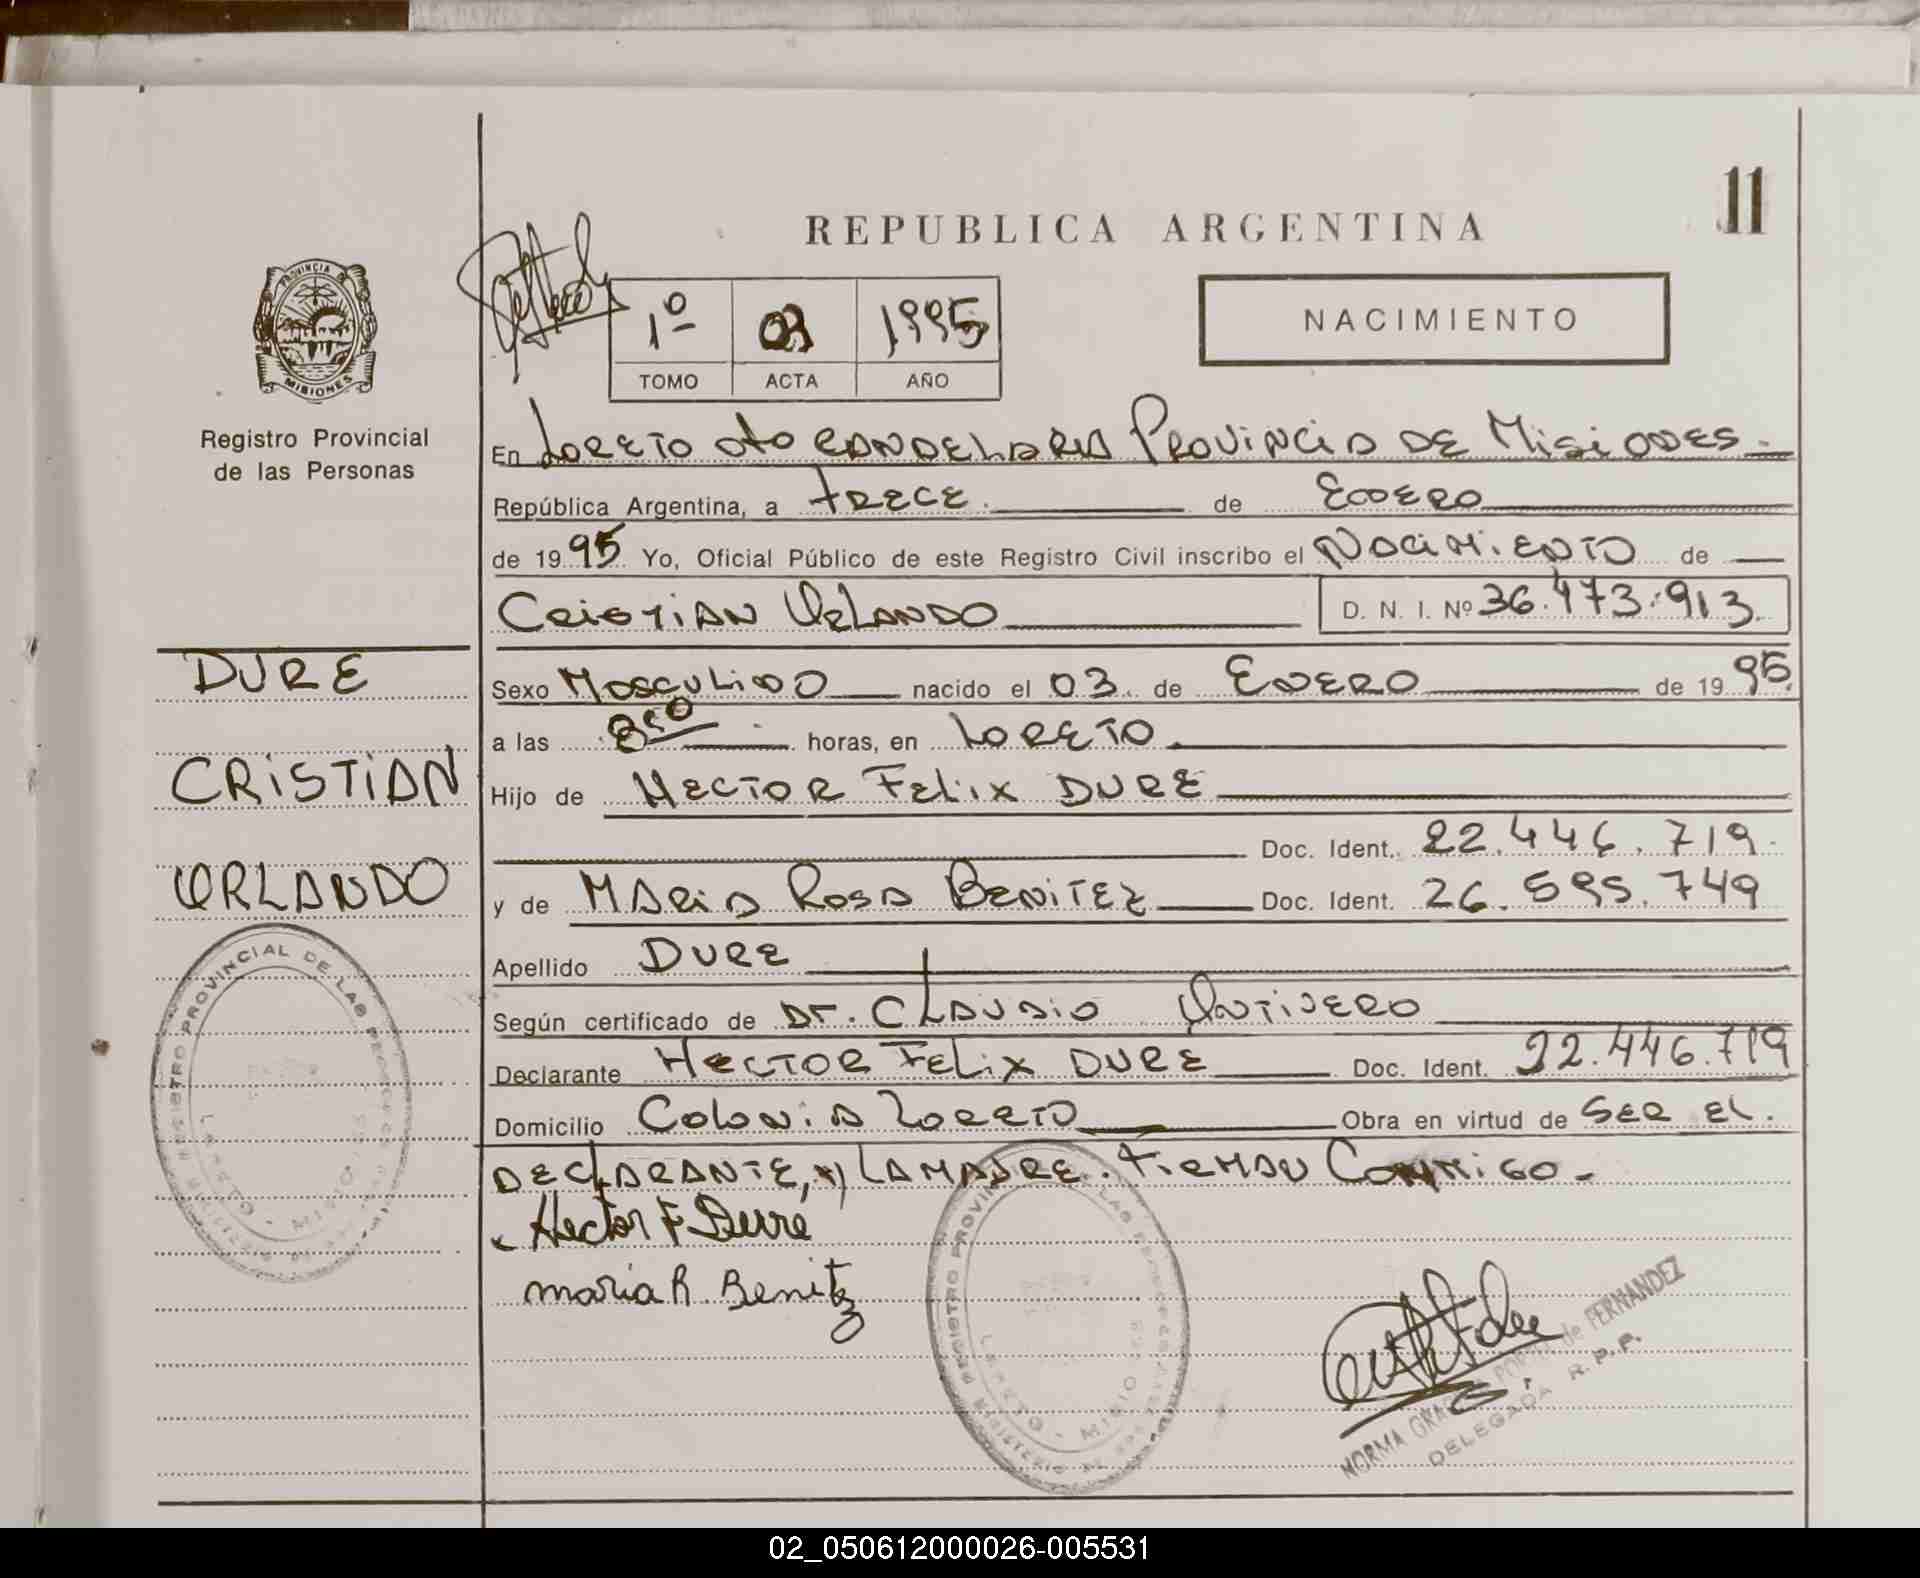 11
REPUBLICA ARGENTINA
PROVINCIA DE
MISIONES
Registro Provincial
de las Personas
1º 1995
TOMO ACTA AÑO
NACIMIENTO
En LORETO dto CANDELARIA PROVINCIA DE MISIONES.
República Argentina, a TRECE. de ENERO
de 1995 Yo, Oficial Público de este Registro Civil inscribo el NACIMIENTO de
CRISTIAN ORLANDO D. N. I. Nº 36.473.913
DURE
CRISTIAN
ORLANDO
Sexo MASCULINO nacido el 03 de ENERO de 1995
a las horas, en LORETO
Hijo de HECTOR FELIX DURE
Doc. Ident. 22.446.719
y de MARIA ROSA BENITEZ Doc. Ident. 26.595.749
Apellido DURE
Según certificado de Dr. CLAUDIO ONTIVERO
Declarante HECTOR FELIX DURE Doc. Ident. 22.446.719
Domicilio COLONIA LORETO Obra en virtud de SER EL
DECLARANTE, y LA MADRE. FIRMAN CONMIGO-
Hector F Dure
maria R. Benitez
REGISTRO PROVINCIAL DE LAS PERSONAS
LORETO - MISIONES
REGISTRO PROVINCIAL DE LAS PERSONAS
LORETO - MISIONES
NORMA de FERNANDEZ
DELEGADA R. P. P.
02_050612000026-005531